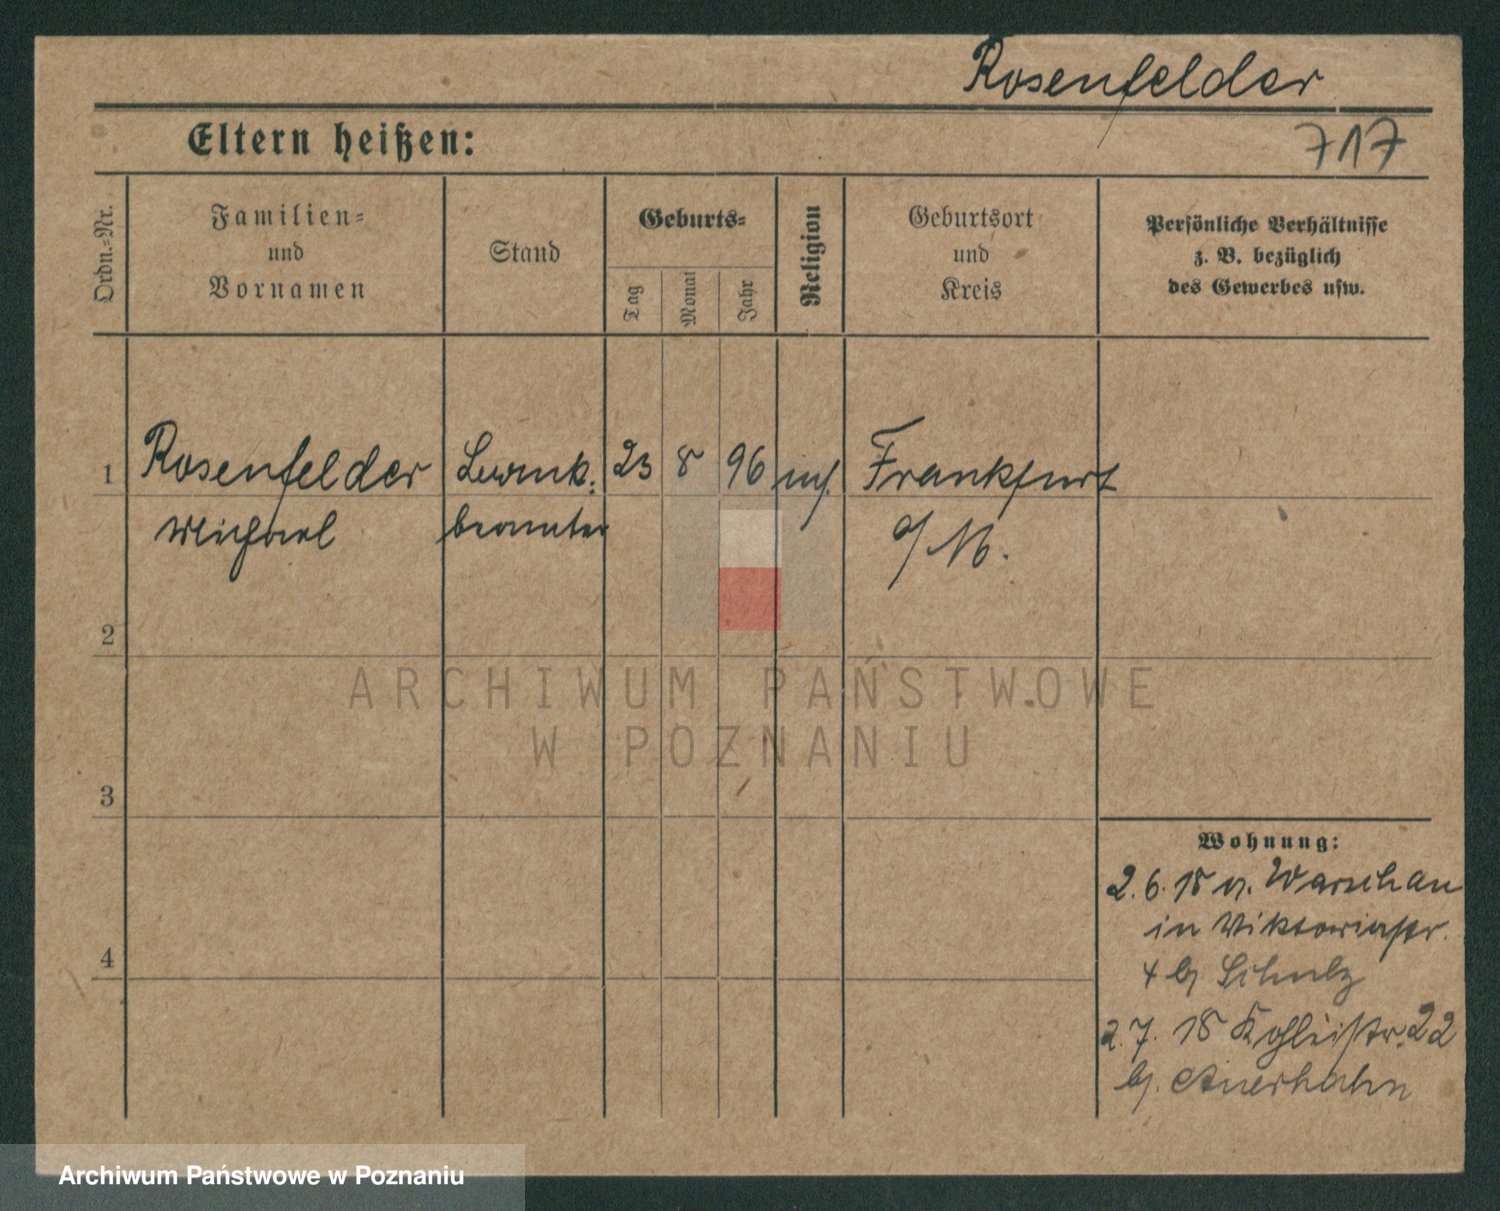 Rosenfelder
717
Eltern heißen:
Ordn.-Nr.
Familien-
und
Vornamen
Stand
Geburts-
Tag
Monat
Jahr
Religion
Geburtsort
und
Kreis
Persönliche Verhältnisse
z. B. bezüglich
des Gewerbes usw.
1
Rosenfelder
23
8
96
Frankfurt
Michael
beamter
a/M.
2
ARCHIWUM PAŃSTWOWE
W POZNANIU
3
Wohnung:
2.6.18 v. Warschau
in Viktoriastr.
4
4 b/ Schulz
2.7.18 Kohleisstr. 22
b/. Auerhahn
Archiwum Państwowe w Poznaniu